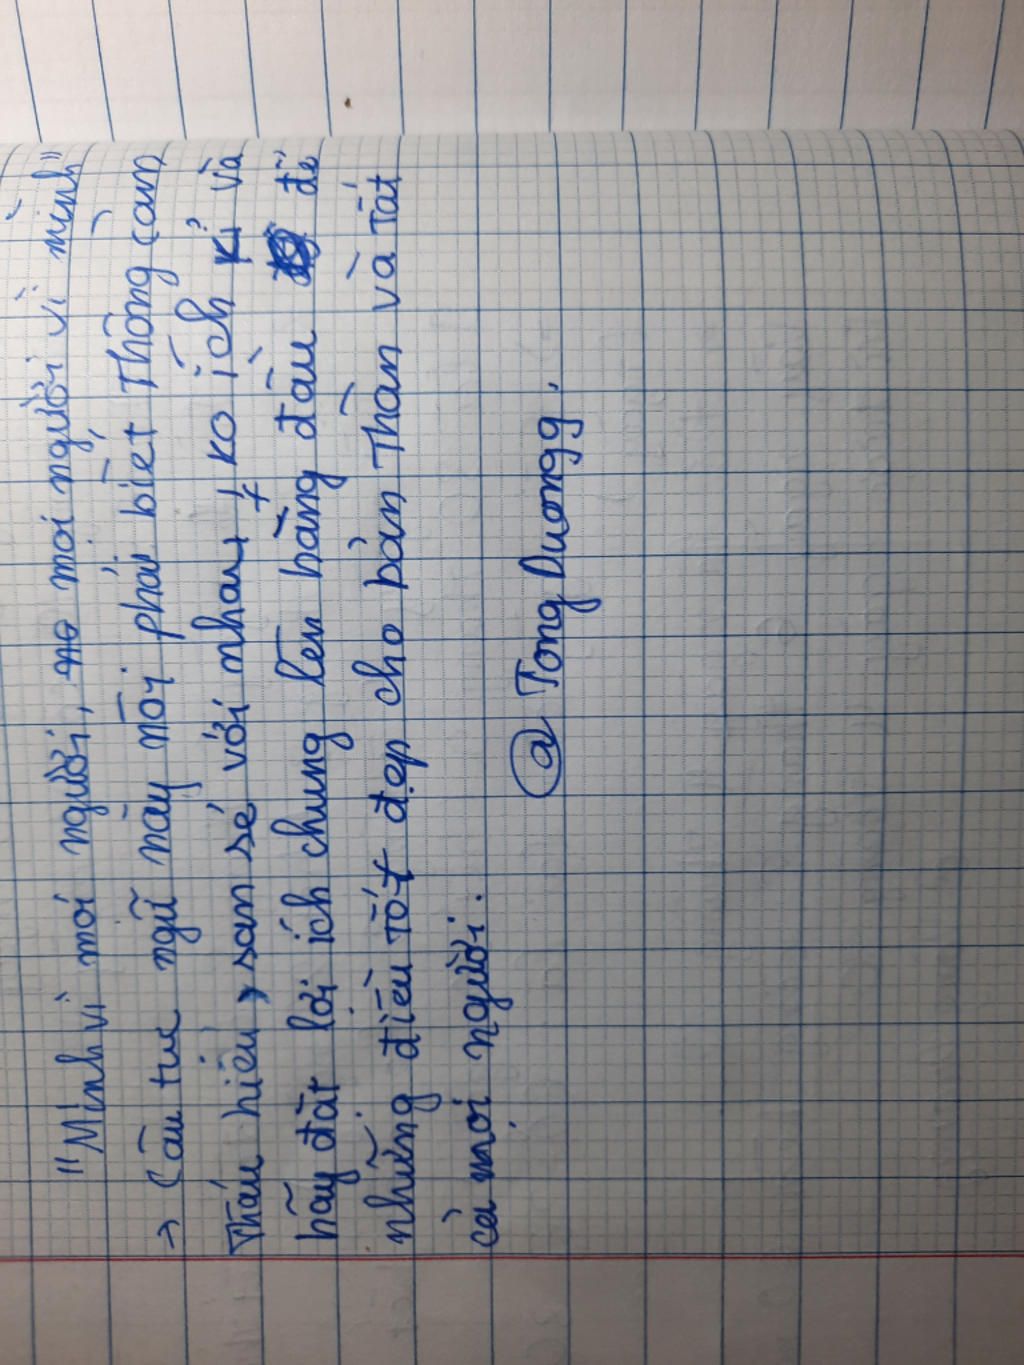 "Mình vì mọi người, mọi người vì mình"
→ Câu tục ngữ này nói phải biết thông cảm
thấu hiểu, san sẻ với nhau, ko ích kỉ và
hãy đặt lợi ích chung lên hàng đầu để
những điều tốt đẹp cho bản thân và tất
cả mọi người.
@ Tong Duongg.